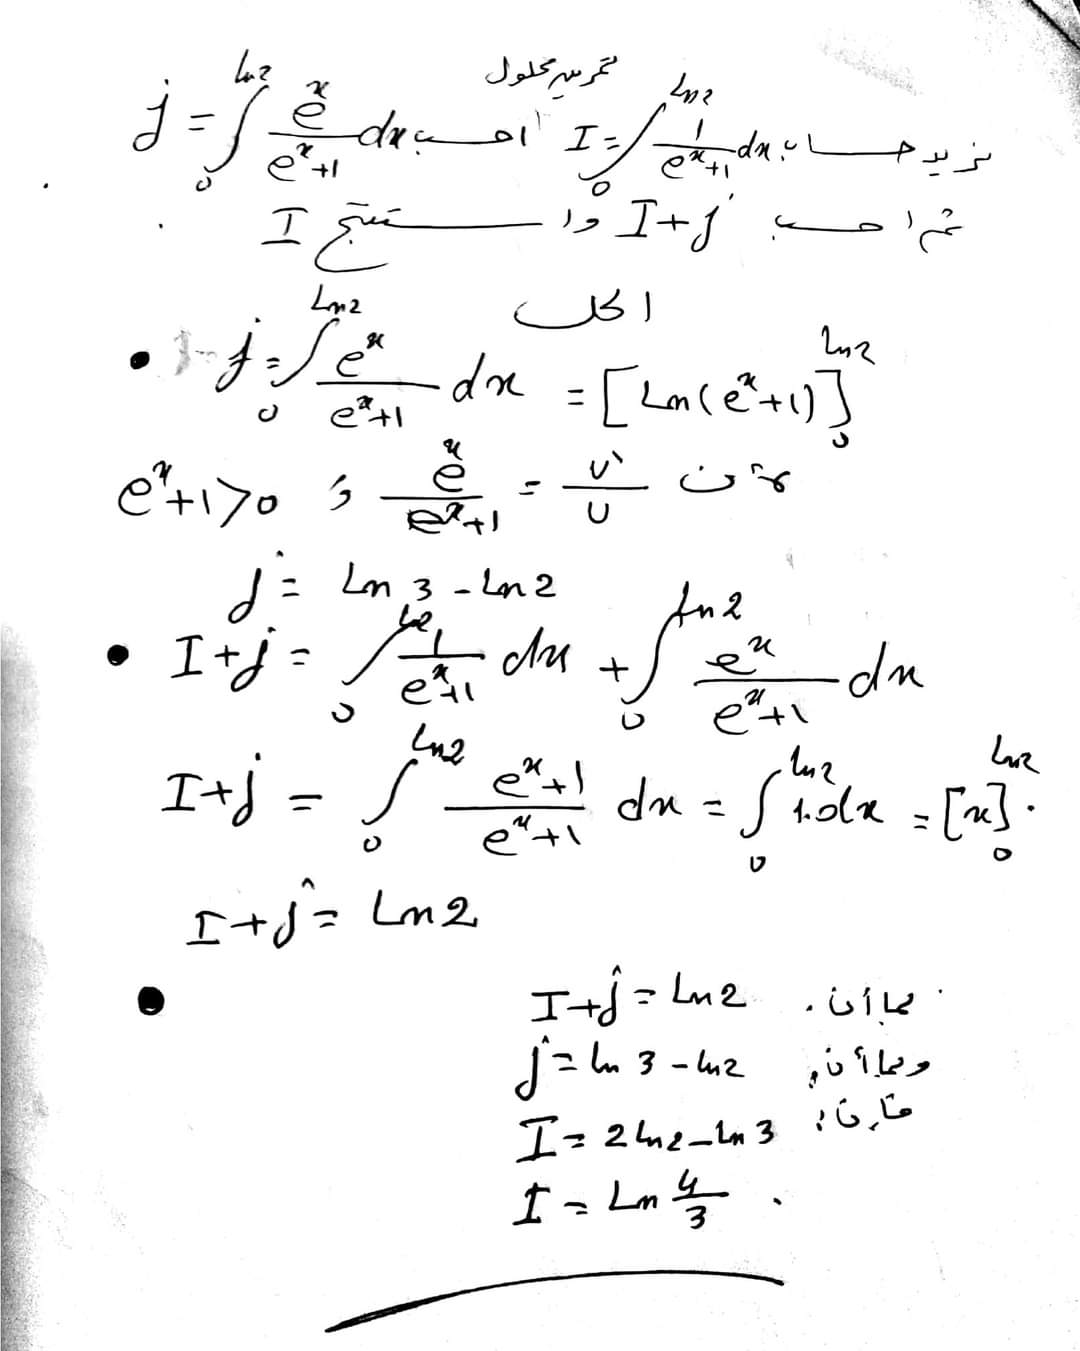 تمرين محلول
نريد حساب I = ∫₀^{Ln2} 1/(e^x+1) dx احسب j = ∫₀^{Ln2} e^x/(e^x+1) dx
ثم احسب I+j واستنتج I
الحل
• j = ∫₀^{Ln2} e^x/(e^x+1) dx = [Ln(e^x+1)]₀^{Ln2}
لأن u'/u = e^x/(e^x+1) و e^x+1>0
j = Ln 3 - Ln 2
• I+j = ∫₀^{Ln2} 1/(e^x+1) dx + ∫₀^{Ln2} e^x/(e^x+1) dx
I+j = ∫₀^{Ln2} (e^x+1)/(e^x+1) dx = ∫₀^{Ln2} 1.dx = [x]₀^{Ln2}.
I+j = Ln 2
• بما أن. I+j = Ln 2
وبما أن, j = Ln 3 - Ln 2
فإن: I = 2 Ln 2 - Ln 3
I = Ln 4/3 .